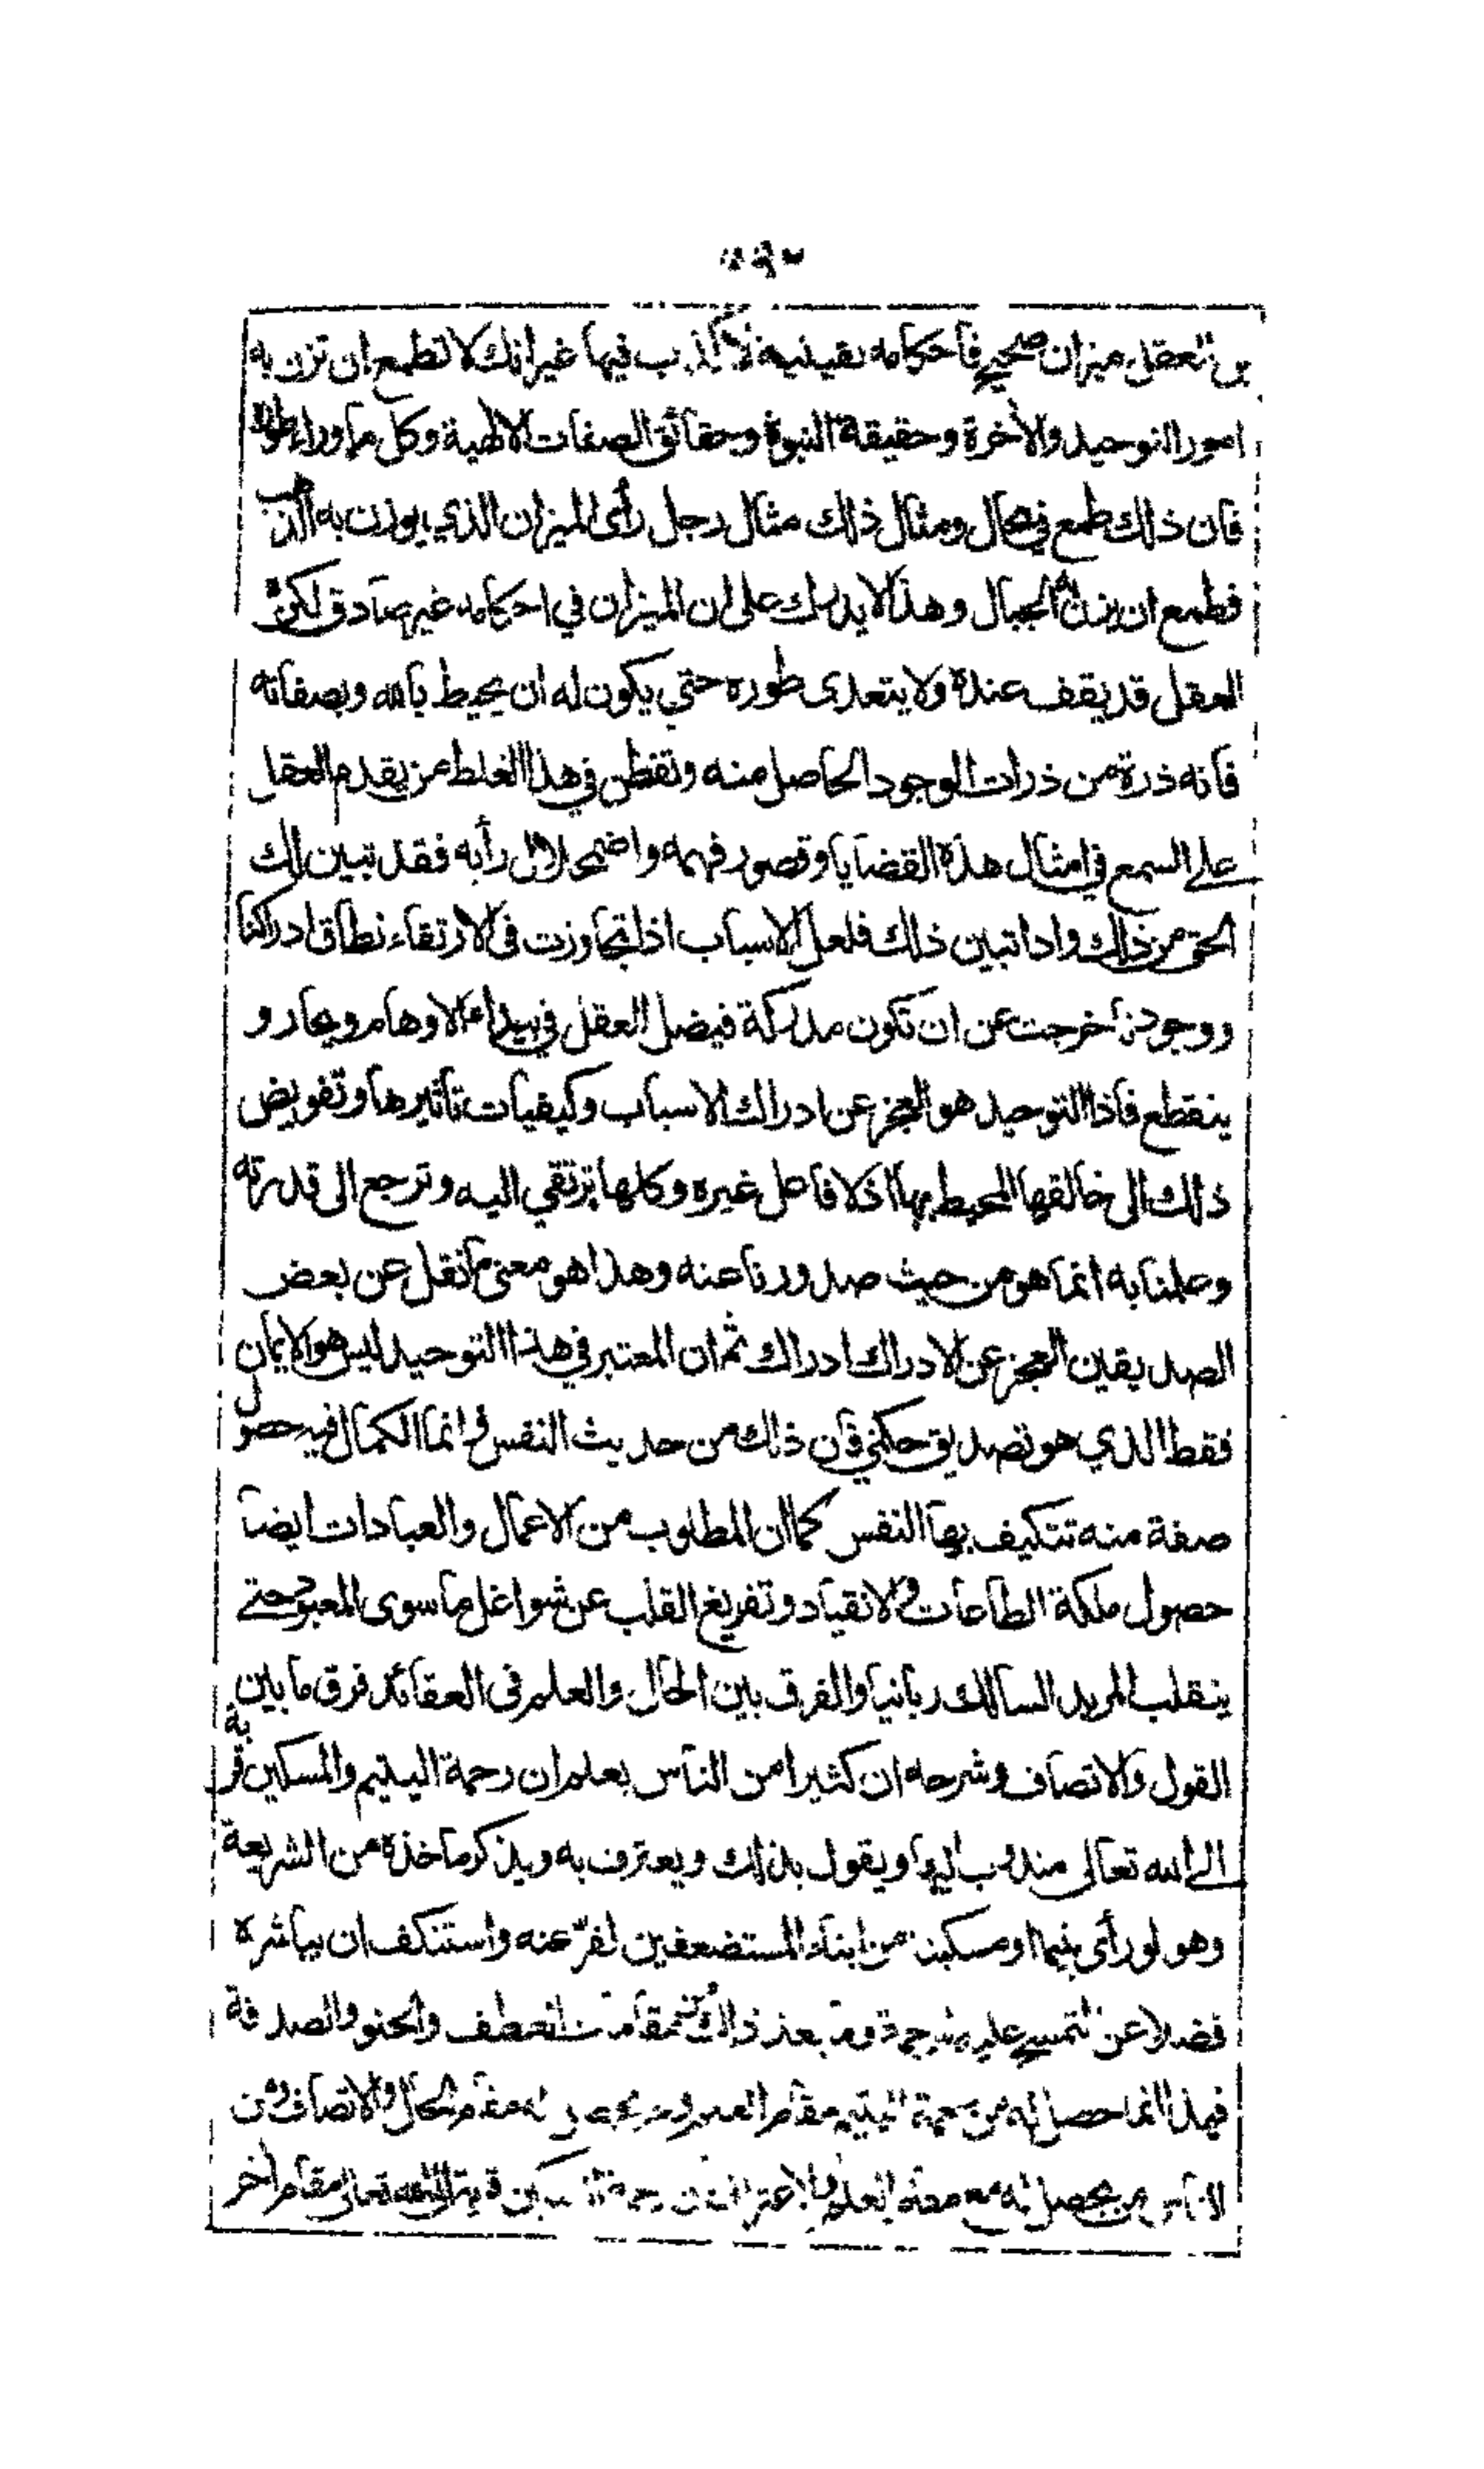 بل العقل ميزان صحيح فأحكامه يقينية لا كذب فيها غير انك لا تطمع ان تزن به
امور التوحيد والآخرة وحقيقة النبوة وحقائق الصفات الالهية وكل ما وراء طوره
فان ذلك طمع في محال ومثال ذلك مثال رجل رأى الميزان الذي يوزن به الذهب
فطمع ان يزن به الجبال وهذا لا يدرك على ان الميزان في احكامه غير صادق لكن
العقل قد يقف عنده ولا يتعدى طوره حتي يكون له ان يحيط بالله وبصفاته
فانه ذرة من ذرات الوجود الحاصل منه وتفطن في هذا الغلط من يقدم العقل
على السمع في امثال هذه القضايا وقصور فهمه واضمحلال رأيه فقد تبين لك
الحق من ذلك واذا تبين ذلك فلعل الاسباب اذا تجاوزت في الارتقاء نطاق ادراكنا
ووجودنا خرجت عن ان تكون مدركة فيضل العقل في بيداء الاوهام ويحار و
ينقطع فاذا التوحيد هو العجز عن ادراك الاسباب وكيفيات تأثيرها وتفويض
ذلك الى خالقها المحيط بها اذ لا فاعل غيره وكلها ترتقي اليه وترجع الى قدرته
وعلمنا به انما هو من حيث صدورنا عنه وهذا هو معنى ما نقل عن بعض
الصديقين العجز عن الادراك ادراك ثم ان المعتبر في هذا التوحيد ليس هو الايمان
فقط الذي هو تصديق حكمي فان ذلك من حديث النفس وانما الكمال فيه حصول
صفة منه تتكيف بها النفس كما ان المطلوب من الاعمال والعبادات ايضا
حصول ملكة الطاعات والانقياد وتفريغ القلب عن شواغل ما سوى المعبود حتى
ينقلب المريد السالك ربانيا والفرق بين الحال والعلم في العقائد فرق ما بين
القول والاتصاف وشرحه ان كثيرا من الناس يعلم ان رحمة اليتيم والمسكين قربة
الى الله تعالى مندوب اليها ويقول بذلك ويعترف به ويذكر مأخذه من الشريعة
وهو لو رأى يتيما او مسكينا من ابناء المستضعفين لفرّ عنه واستنكف ان يباشره
فضلا عن التمسح عليه للرحمة وما بعد ذلك من مقامات العطف والحنو والصدقة
فهذا انما حصل له من رحمة اليتيم مقام العلم ولم يحصل له مقام الحال والاتصاف ومن
الناس من يحصل له مع مقام العلم والاعتراف بان رحمة المسكين قربة الى الله تعالى مقام آخر